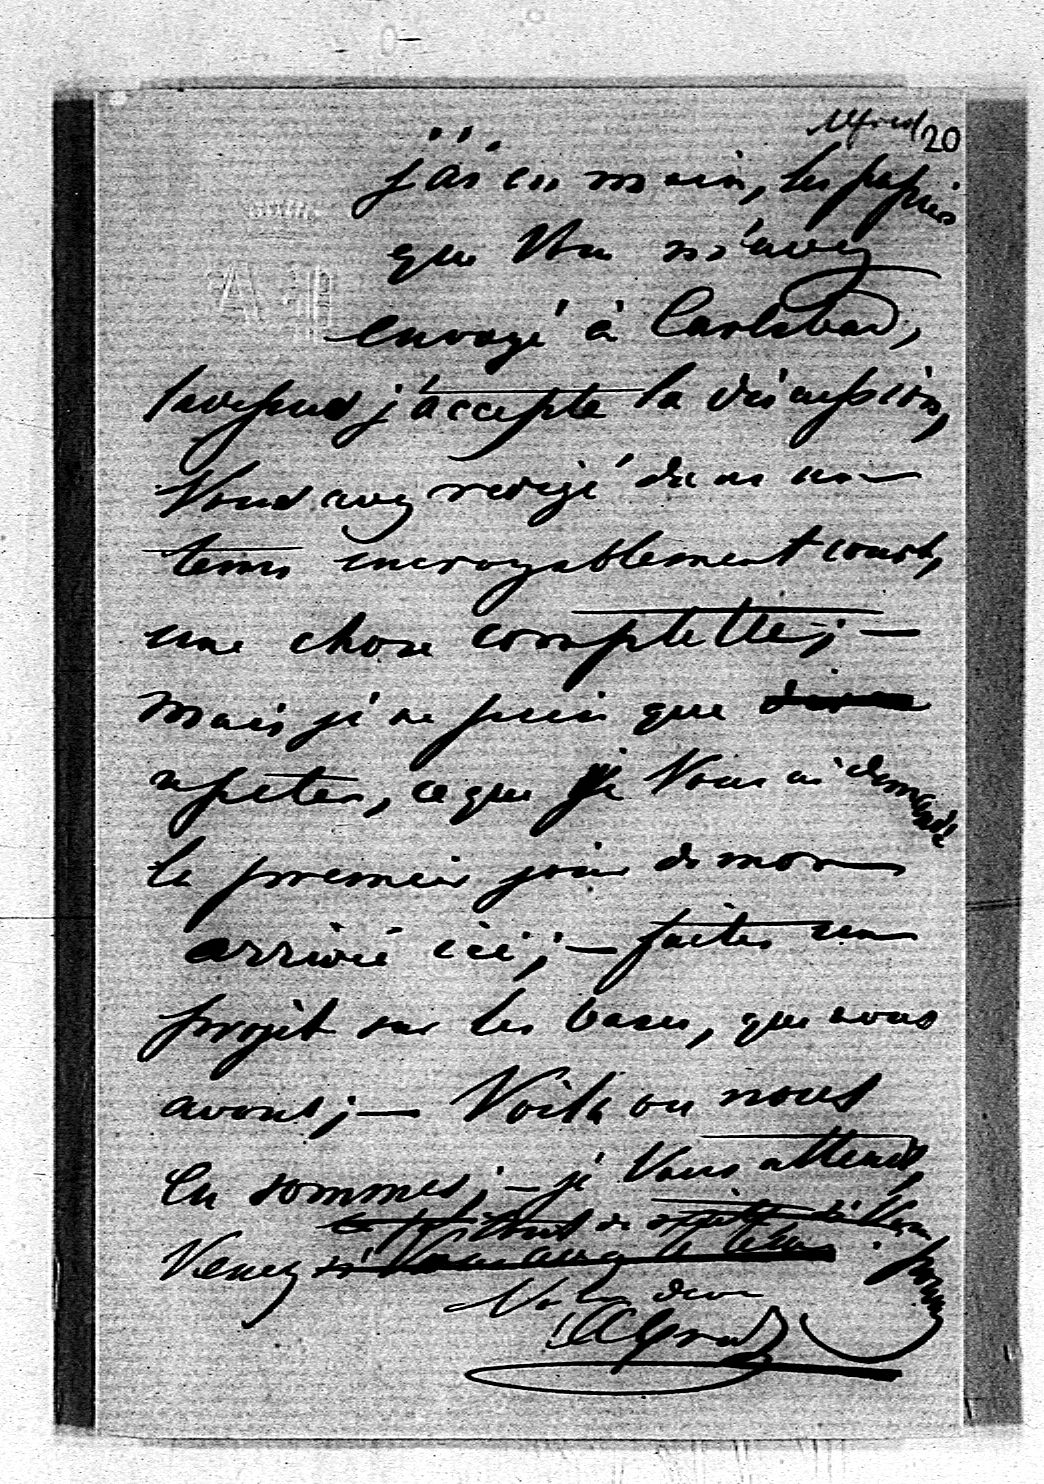 Alfred 20
j'ai en main, les papiers
que Vous m'avez
envoyé à Carlsbad,
j'accepte la discussion,
Vous avez redigé dans un
tems incroyablement court,
une chose complette; —
mais je ne puis que
repeter, ce que je Vous ai demandé
le premier jour de mon
arrivée ici; — faites un
projèt sur les bases, que nous
avons; — Voilà ou nous
en sommes; — je Vous attends,
Venez si Vous avez le tems
Votre devoué
Alfred